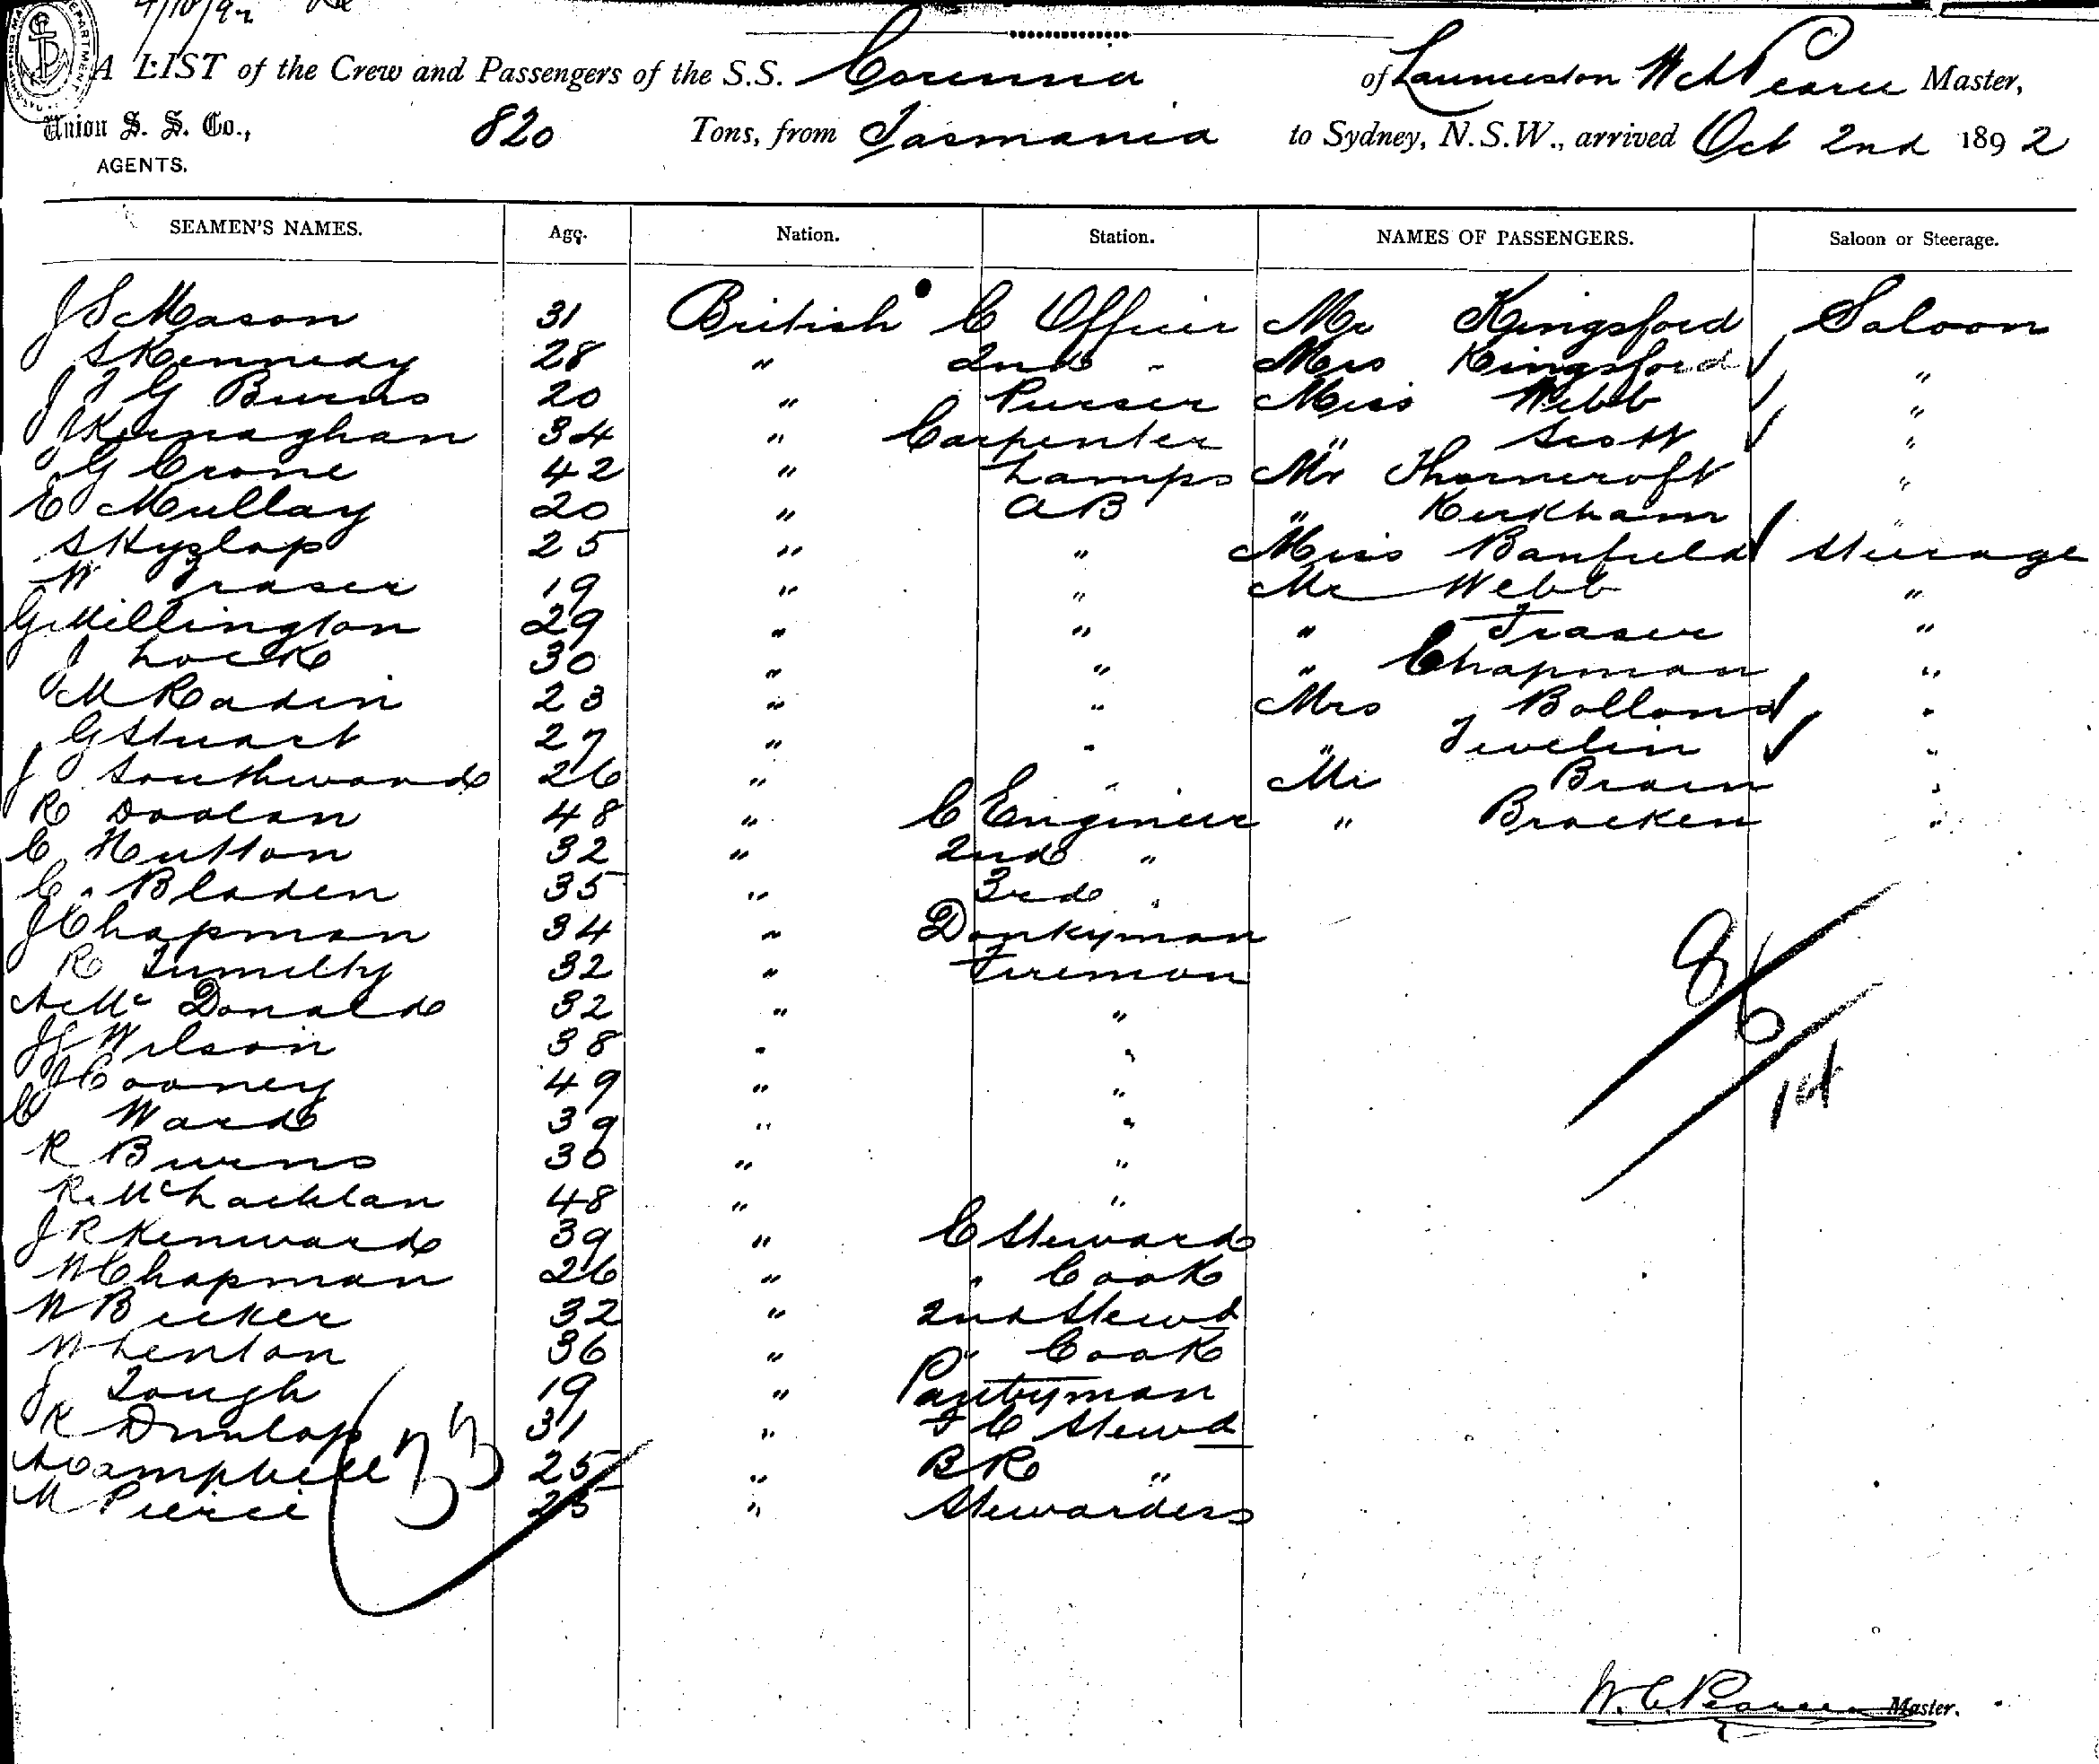 4/10/92
A LIST of the Crew and Passengers of the S.S. Corinna of Launceston Pearce Master,
Union S. S. Co., 820 Tons, from Tasmania to Sydney, N.S.W., arrived Oct 2nd 1892
AGENTS.
SEAMEN'S NAMES. Age. Nation. Station. NAMES OF PASSENGERS. Saloon or Steerage.
J S Mason 31 British C Officer Mr Kingsford Saloon
S Kennedy 28 " 2nd " Mrs Kingsford "
J G Burns 20 " Purser Miss Webb "
J Kernaghan 34 " Carpenter " Scott "
G Crone 42 " Lamps Mr Thorncroft "
E Mullay 20 " AB " Kirkham "
S Hyslop 25 " " Miss Banfield Steerage
W Fraser 19 " " Mr Webb "
G Millington 29 " " " Fraser "
J Lock 30 " " " Chapman "
M Radin 23 " " Mrs Bolland "
G Stuart 27 " " " "
J Southwood 26 " " Mr "
R Doolan 48 " C Engineer " Bracken "
C Hutton 32 " 2nd "
C. Bladen 35 " 3rd "
J Chapman 34 " Donkyman
R Tumilty 32 " Fireman
A Mc Donald 32 " "
Wilson 38 " "
J Cooney 49 " "
C Ward 39 " "
R Burns 30 " "
R. McLachlan 48 " "
J R Kenward 39 " C Steward
W Chapman 26 " " Cook
W Becker 32 " 2nd Stewd
W Lenton 36 " " Cook
J Tough 19 " Pantryman
R Dunlop 31 " F C Stewd
A Campbell 25 " BR "
M Pierce 25 " Stewardess
33
8/6/
W. C. Pearce Master.